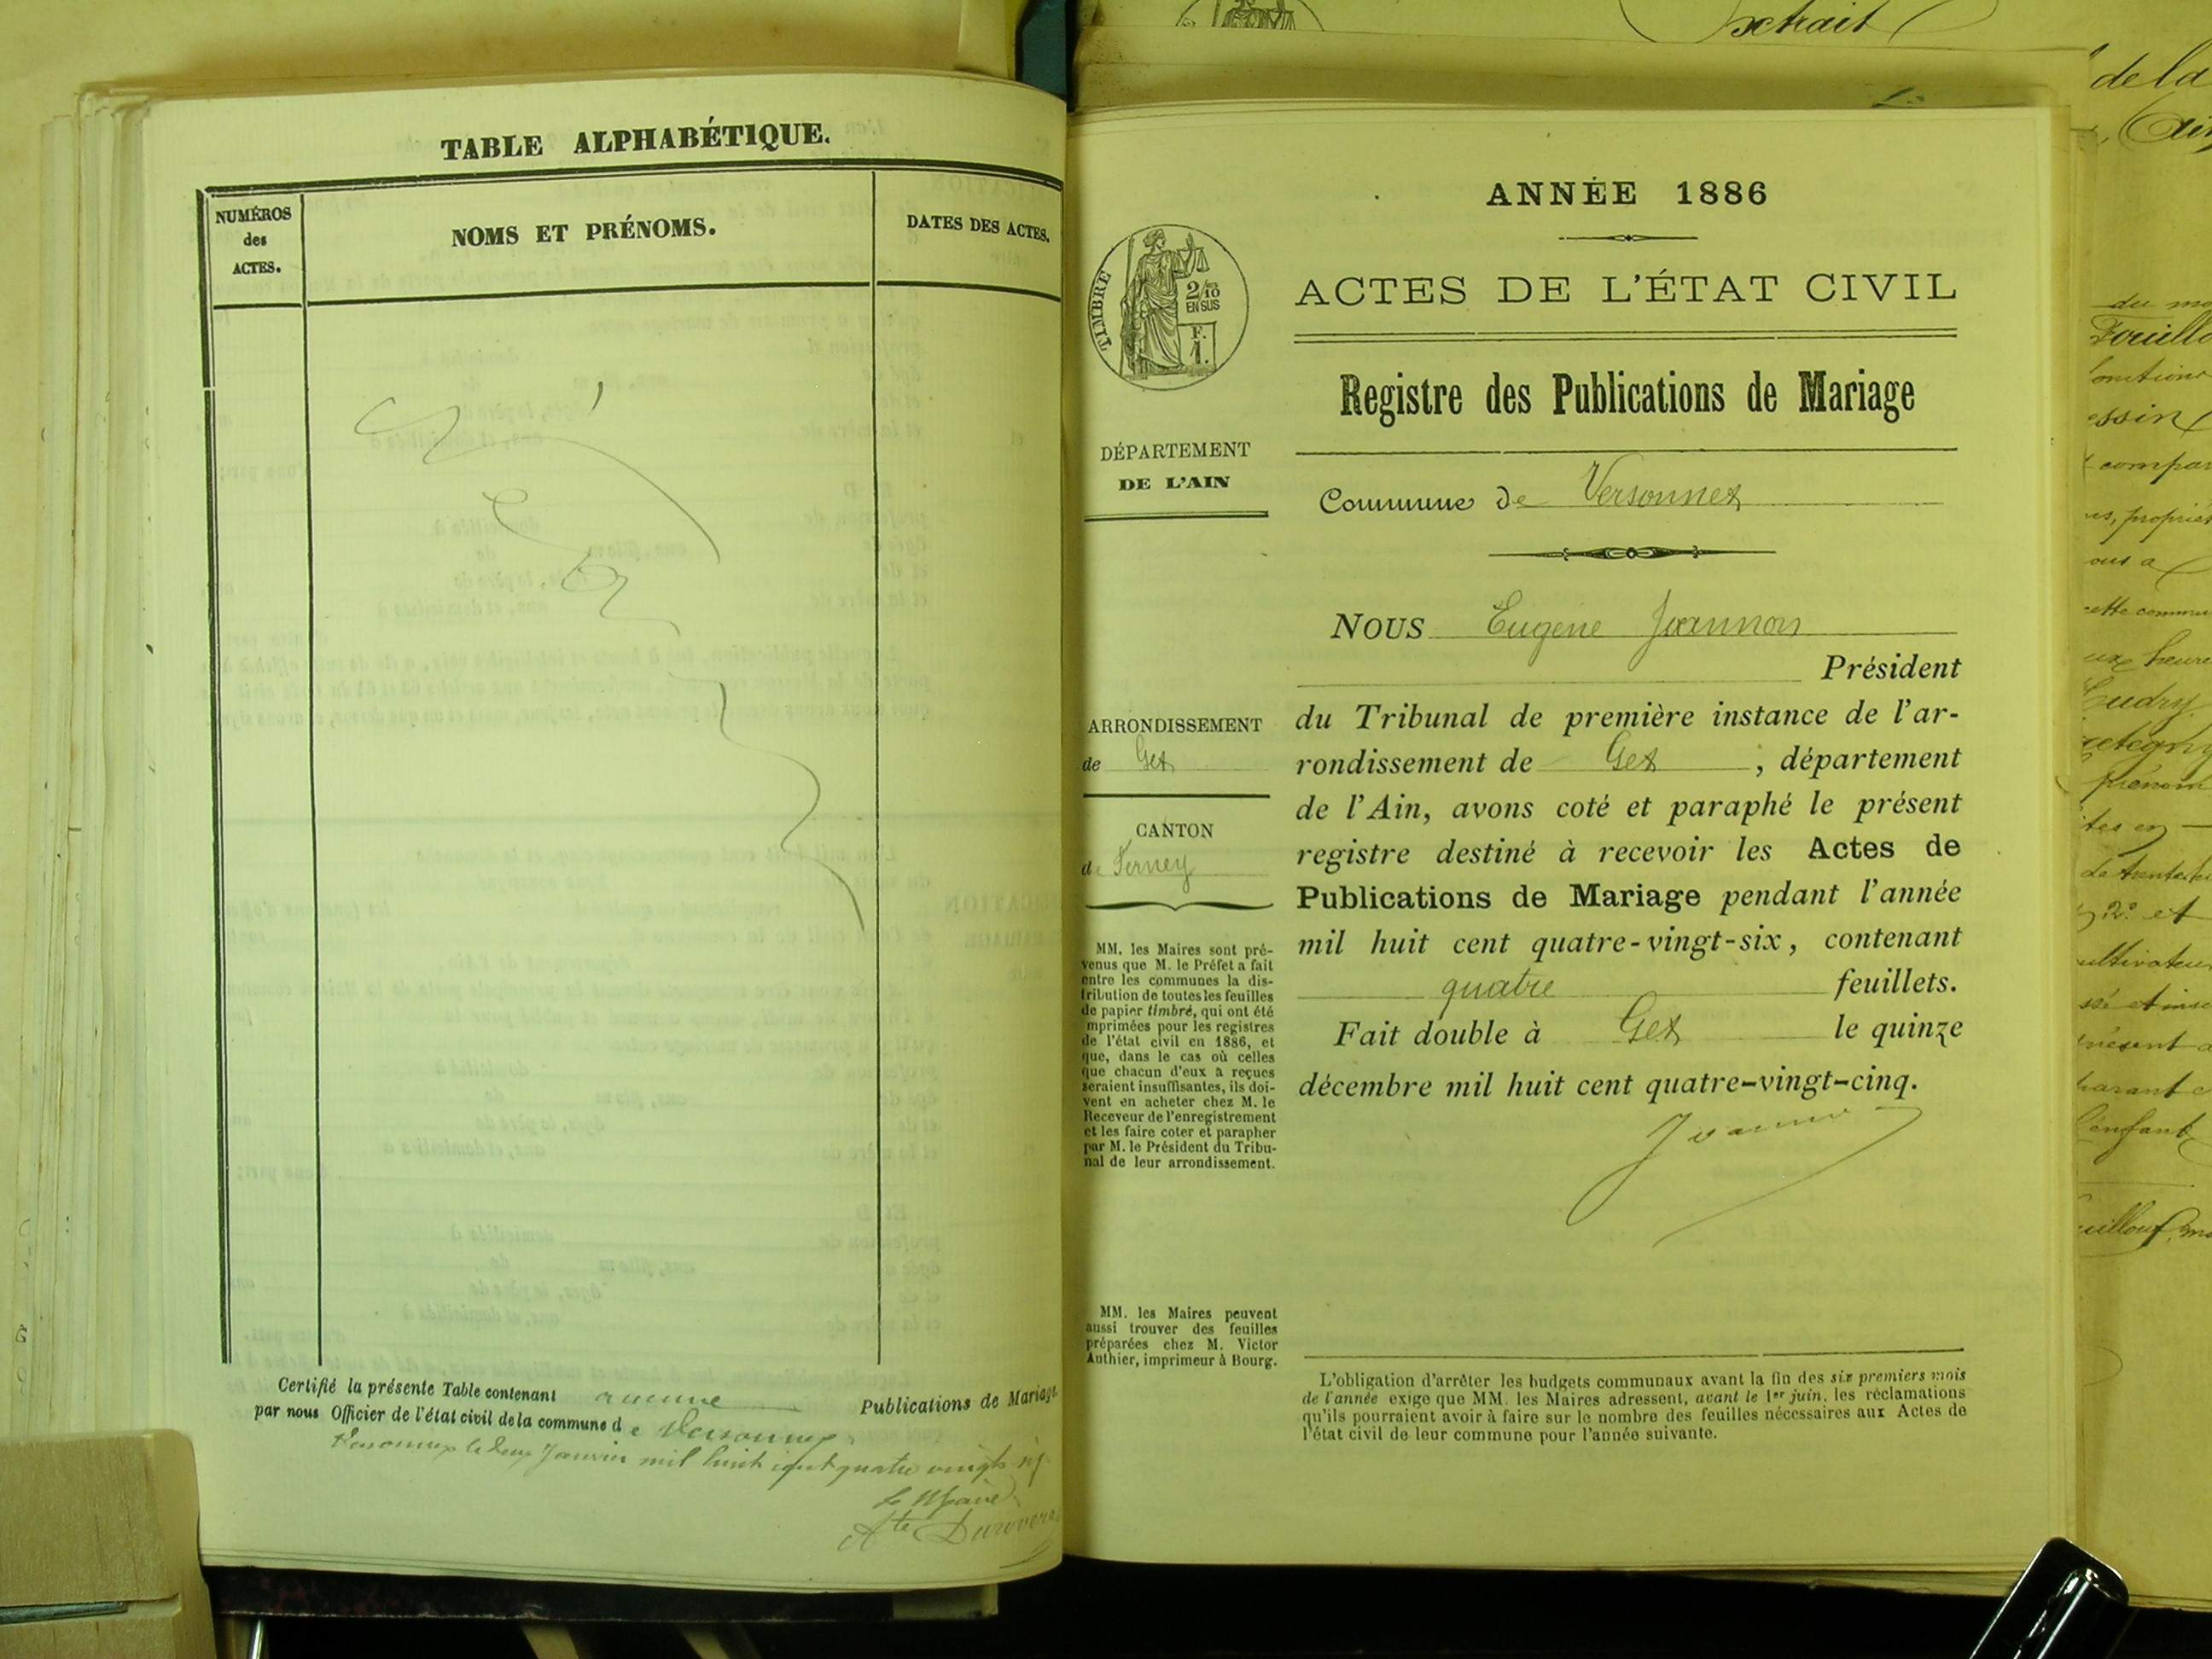 TABLE ALPHABÉTIQUE.
NUMÉROS
des
ACTES.
NOMS ET PRÉNOMS.
DATES DES ACTES.
Certifié la présente Table contenant aucune Publications de Mariage
par nous Officier de l'état civil de la commune de Versonnex
Versonnex le deux Janvier mil huit cent quatre vingt six
Le Maire
ANNÉE 1886
ACTES DE L'ÉTAT CIVIL
TIMBRE
2/10
EN SUS
F.
1.
Registre des Publications de Mariage
DÉPARTEMENT
DE L'AIN
Commune de Versonnex
Nous Eugène Jeannon
Président
du Tribunal de première instance de l'ar-
rondissement de Gex, département
de l'Ain, avons coté et paraphé le présent
registre destiné à recevoir les Actes de
Publications de Mariage pendant l'année
mil huit cent quatre-vingt-six, contenant
quatre feuillets.
Fait double à Gex le quinze
décembre mil huit cent quatre-vingt-cinq.
ARRONDISSEMENT
de Gex
CANTON
de Ferney
MM. les Maires sont pré-
venus que M. le Préfet a fait
entre les communes la dis-
tribution de toutes les feuilles
de papier timbré, qui ont été
imprimées pour les registres
de l'état civil en 1886, et
que, dans le cas où celles
que chacun d'eux a reçues
seraient insuffisantes, ils doi-
vent en acheter chez M. le
Receveur de l'enregistrement
et les faire coter et parapher
par M. le Président du Tribu-
nal de leur arrondissement.
MM. les Maires peuvent
aussi trouver des feuilles
préparées chez M. Victor
Authier, imprimeur à Bourg.
L'obligation d'arrêter les budgets communaux avant la fin des six premiers mois
de l'année exige que MM. les Maires adressent, avant le 1er juin, les réclamations
qu'ils pourraient avoir à faire sur le nombre des feuilles nécessaires aux Actes de
l'état civil de leur commune pour l'année suivante.
extrait
de la